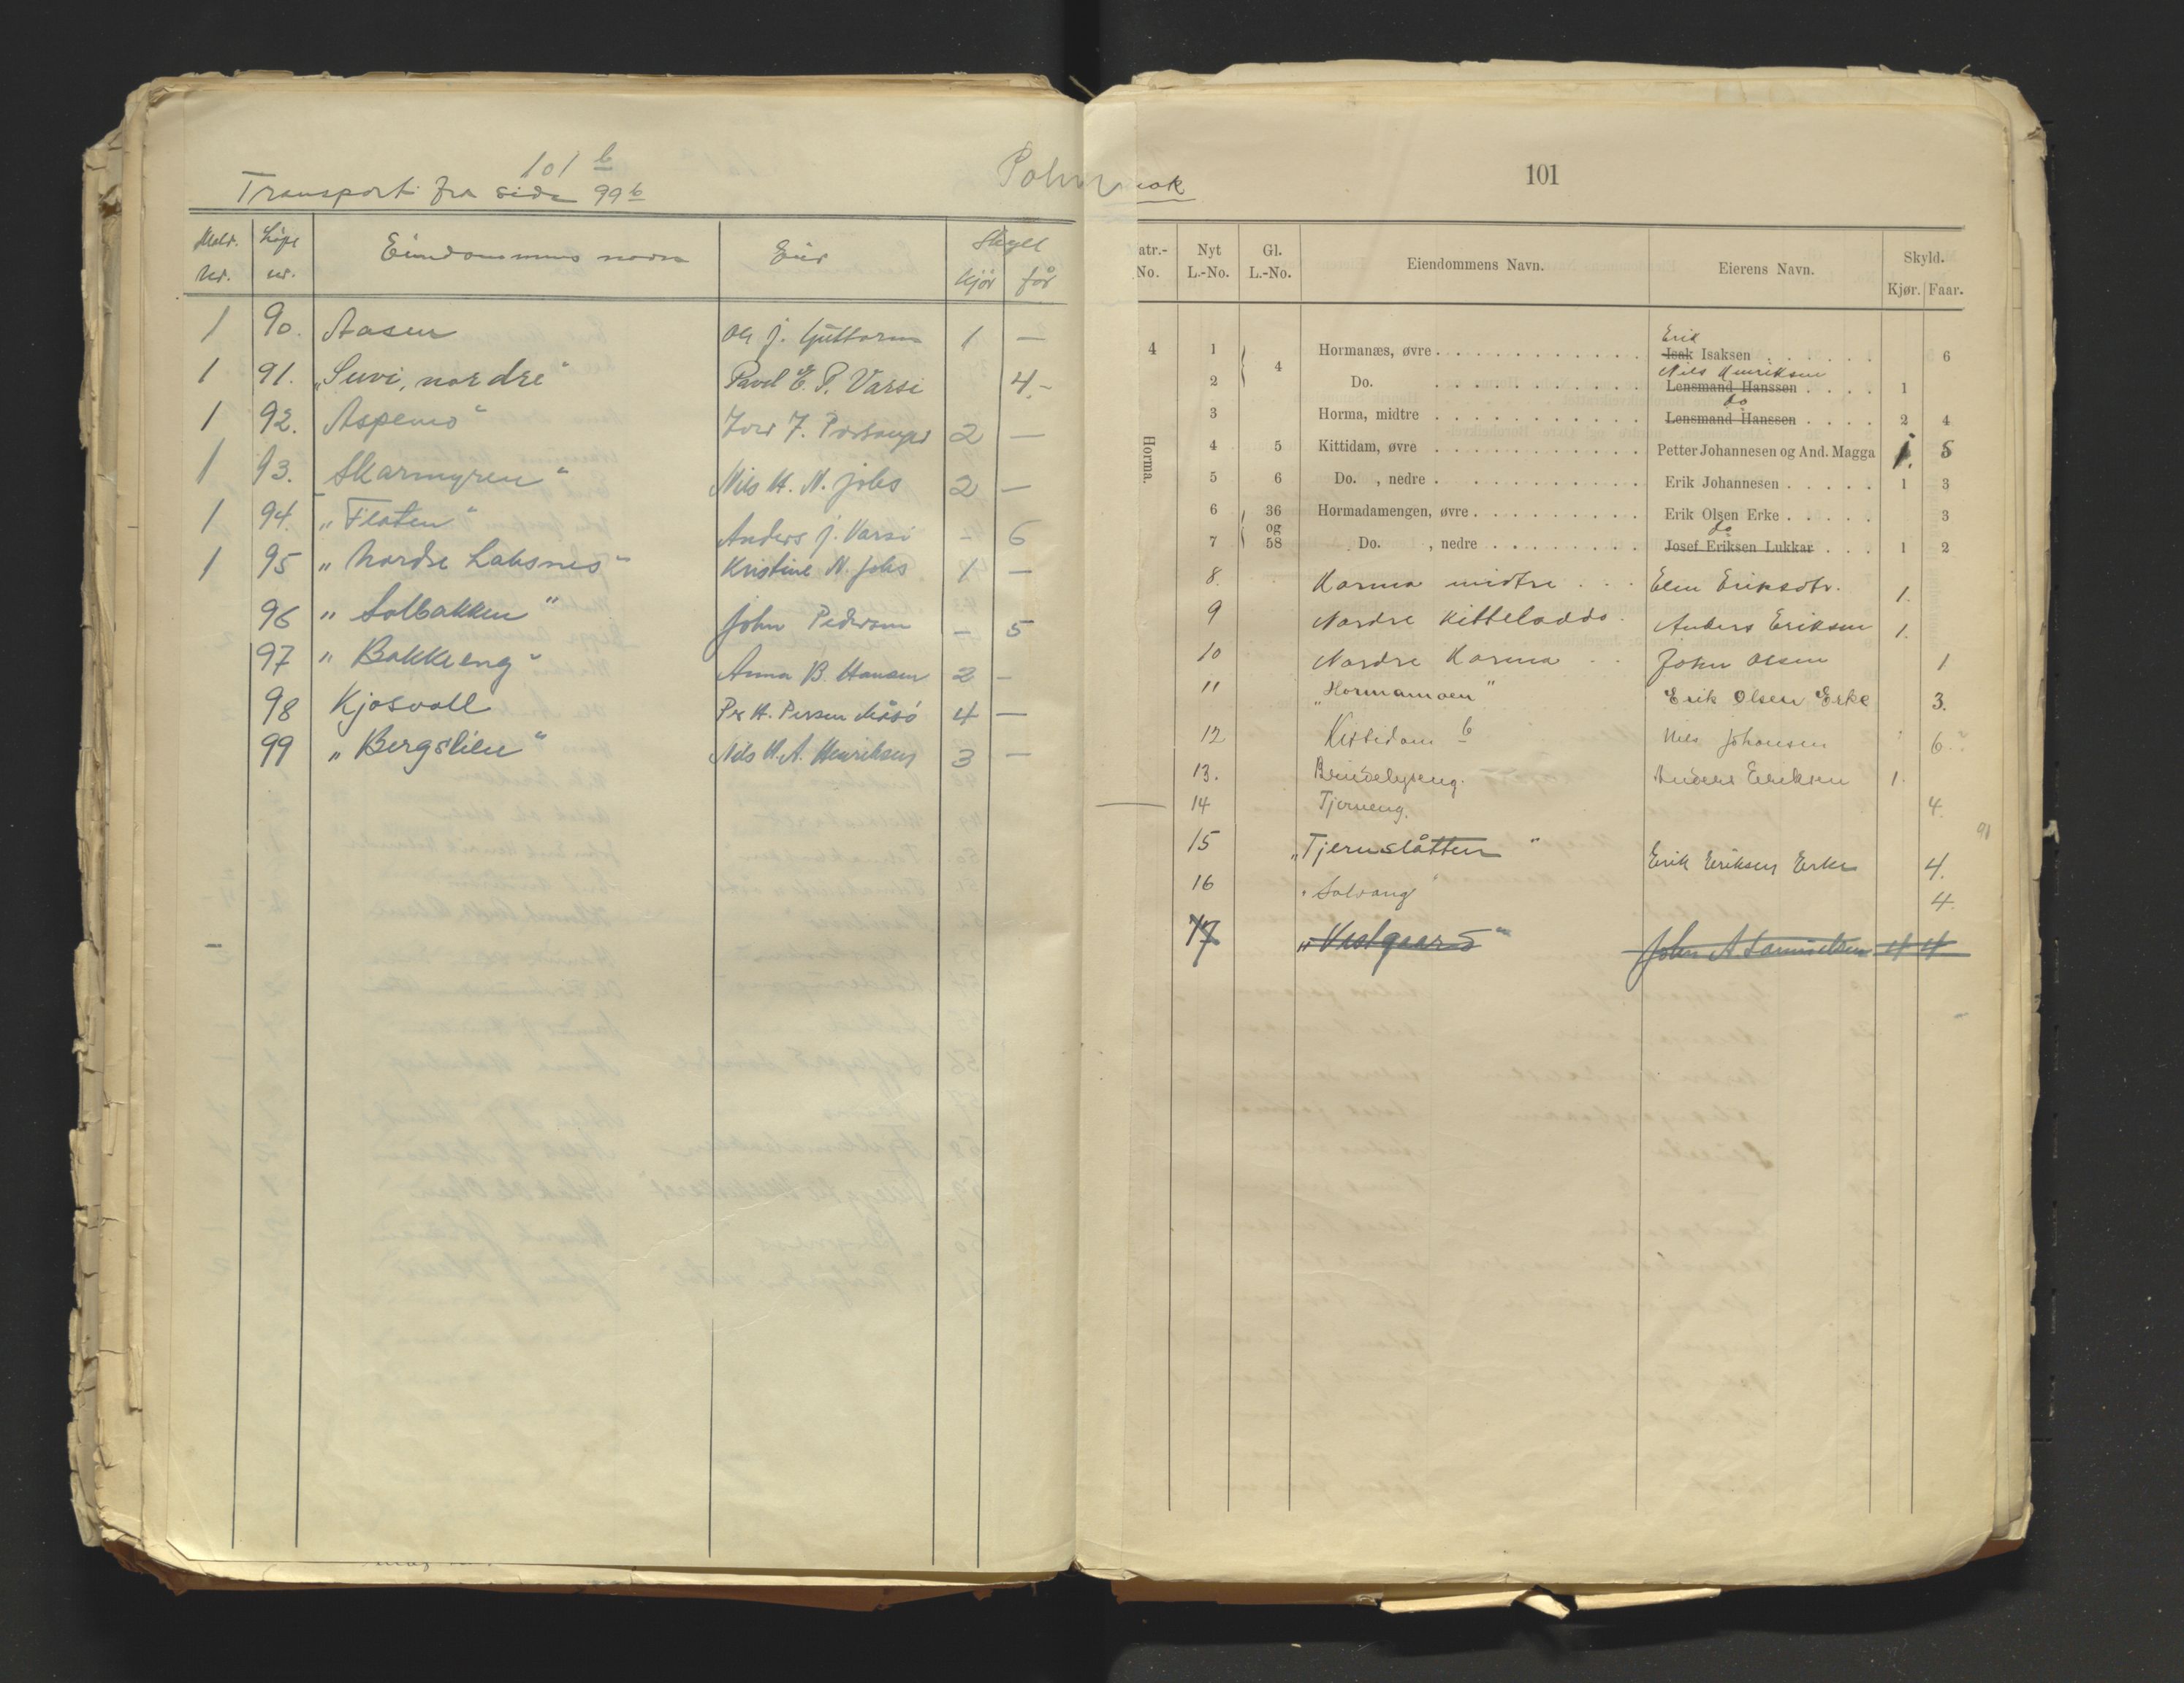 101 b
Transport fra side 99 b
Polmak
Matr. Nr. Löpe nr. Eiendommens navn Eier Skyld Kjör får
1 90. Aasen Ole J. Guttorm 1 —
1 91. „Suvi, nordre" Pavel E. P. Varsi 4.-
1 92. Aspemo" 2 —
1 93. Skarmyren" Nils H. N. Johs 2 —
1 94. „Flaten" Anders J. Varsi - 6
1 95 „Nordre Laksnes" Kristine N. Johs 1 —
96 „Solbakken" John Pedersen - 5
97 „Bakkeng" Anna B. Hansen 2 -
98 Kjosvoll Per H. Persen Måsö 4 —
99 „Bergslien" Nils H. A. Henriksen 3 —
101
atr.-No. Nyt L.-No. Gl. L.-No. Eiendommens Navn. Eierens Navn. Skyld. Kjør. Faar.
Horma.
Erik
4 1 4 Hormanæs, øvre Isak Isaksen 6
Nils Henriksen
2 Do. Lensmand Hanssen 1
do
3 Horma, midtre Lensmand Hanssen 2 4
4 5 Kittidam, øvre Petter Johannesen og And. Magga 1. 5
5 6 Do. , nedre Erik Johannesen 1 3
6 36 og 58 Hormadamengen, øvre Erik Olsen Erke 3
do
7 Do. , nedre Josef Eriksen Lukkar 1 2
8. Horma midtre Elen Eriksdtr. 1.
9 Nordre Kitteladdo Anders Eriksen 1.
10 Nordre Horma John Olsen 1
11 „Hormamoen" Erik Olsen Erke 3.
12 Kittidam b Nils Johansen 6
13. Anders Eriksen 1.
14 Tjerneng. 4.
15 „Tjernslåtten" Erik Eriksen Erke 4.
16 „Solvang" 4.
17 „Vestgaard" John A Samuelsen 4 4